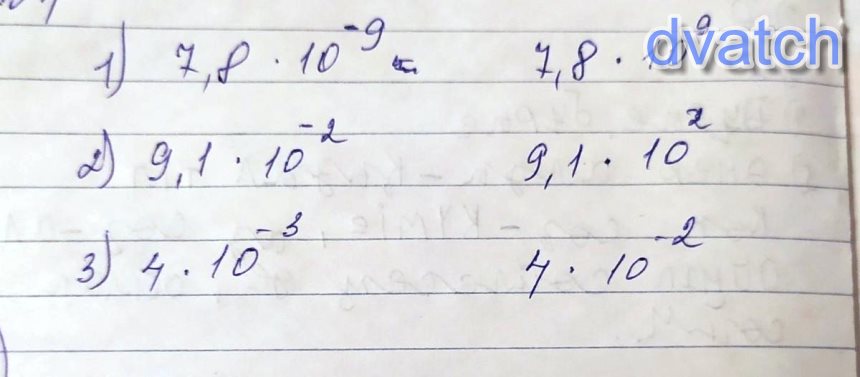 1) 7,8 · 10⁻⁹ 7,8 · 10⁹
dvatch
2) 9,1 · 10⁻² 9,1 · 10²
3) 4 · 10⁻³ 4 · 10⁻²